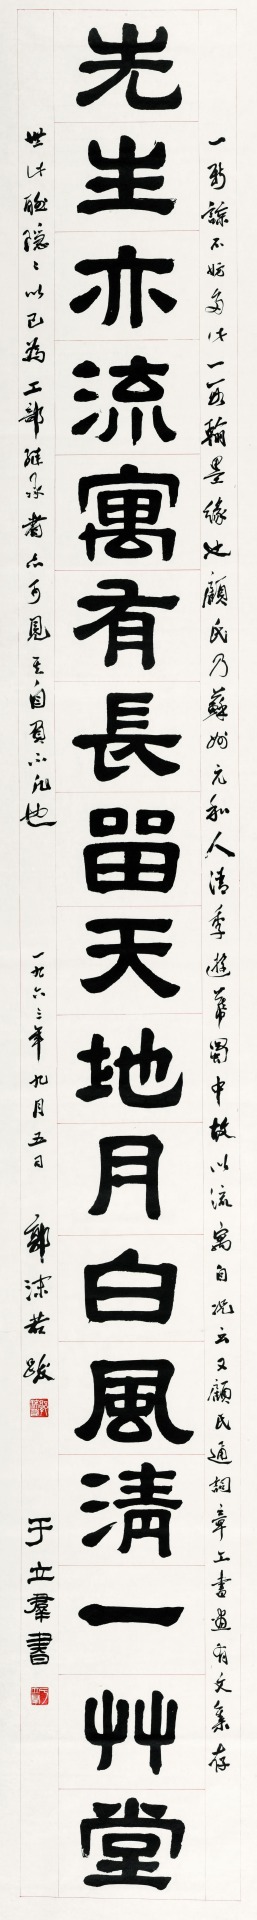 先生亦流寓有長留天地月白風清一艸堂
一新諒不妨多此一段翰墨緣也顧氏乃蘇州元和人清季遊幕蜀中故以流寓自況云又顧氏通詞章工書畫有文集存
世此聯隱隱以己為工部繼承者亦可見其自負不凡也
一九六三年九月五日 郭沫若跋
于立羣書